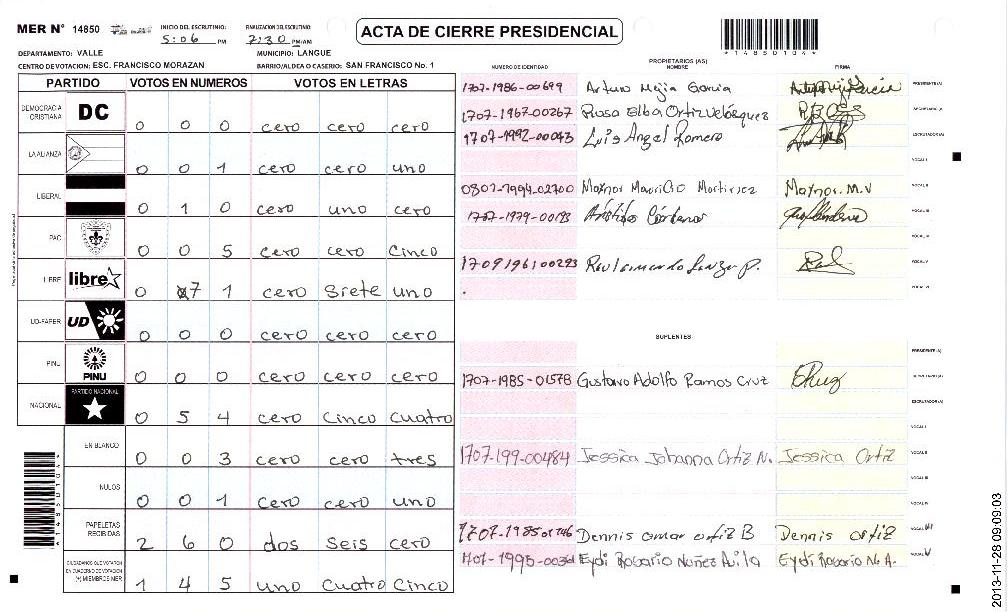 MER N° 14850 INICIO DEL ESCRUTINIO: 5:06 PM FINALIZACION DEL ESCRUTINIO: 7:30 PM/AM
ACTA DE CIERRE PRESIDENCIAL
*14850104*
DEPARTAMENTO: VALLE MUNICIPIO: LANGUE
CENTRO DE VOTACION: ESC. FRANCISCO MORAZAN BARRIO/ALDEA O CASERIO: SAN FRANCISCO No. 1
PARTIDO VOTOS EN NUMEROS VOTOS EN LETRAS
DEMOCRACIA CRISTIANA DC 0 0 0 cero cero cero
LA ALIANZA 0 0 1 cero cero uno
LIBERAL 0 1 0 cero uno cero
PAC 0 0 5 cero cero Cinco
LIBRE libre 0 7 1 cero Siete uno
UD-FAPER UD 0 0 0 cero cero cero
PINU PINU 0 0 0 cero cero cero
NACIONAL PARTIDO NACIONAL 0 5 4 cero Cinco Cuatro
EN BLANCO 0 0 3 cero cero tres
NULOS 0 0 1 cero cero uno
PAPELETAS RECIBIDAS 2 6 0 dos Seis cero
CIUDADANOS QUE VOTARON EN CUADERNO DE VOTACION (+) MIEMBROS MER 1 4 5 uno Cuatro Cinco
PROPIETARIOS (AS)
NUMERO DE IDENTIDAD NOMBRE FIRMA
1707-1986-00699 Arturo Mejia Garcia PRESIDENTE(A)
1707-1967-00267 Rosa Elba Ortiz Velasquez SECRETARIO(A)
1707-1992-00043 Luis Angel Romero ESCRUTADOR(A)
VOCAL I
0801-1994-02700 Maynor Mauricio Martinez Maynor. M.V VOCAL II
1707-1979-00193 VOCAL III
VOCAL IV
1709196100293 VOCAL V
VOCAL VI
SUPLENTES
PRESIDENTE(A)
1707-1985-01578 Gustavo Adolfo Ramos Cruz SECRETARIO(A)
ESCRUTADOR(A)
VOCAL I
1707-199-00484 Jessica Johanna Ortiz N. Jessica Ortiz VOCAL II
VOCAL III
VOCAL IV
1707-1985-01746 Dennis omar ortiz B Dennis ortiz
Eydi Rosario Nuñez Avila Eydi Rosario N. A.
2013-11-28 09:09:03